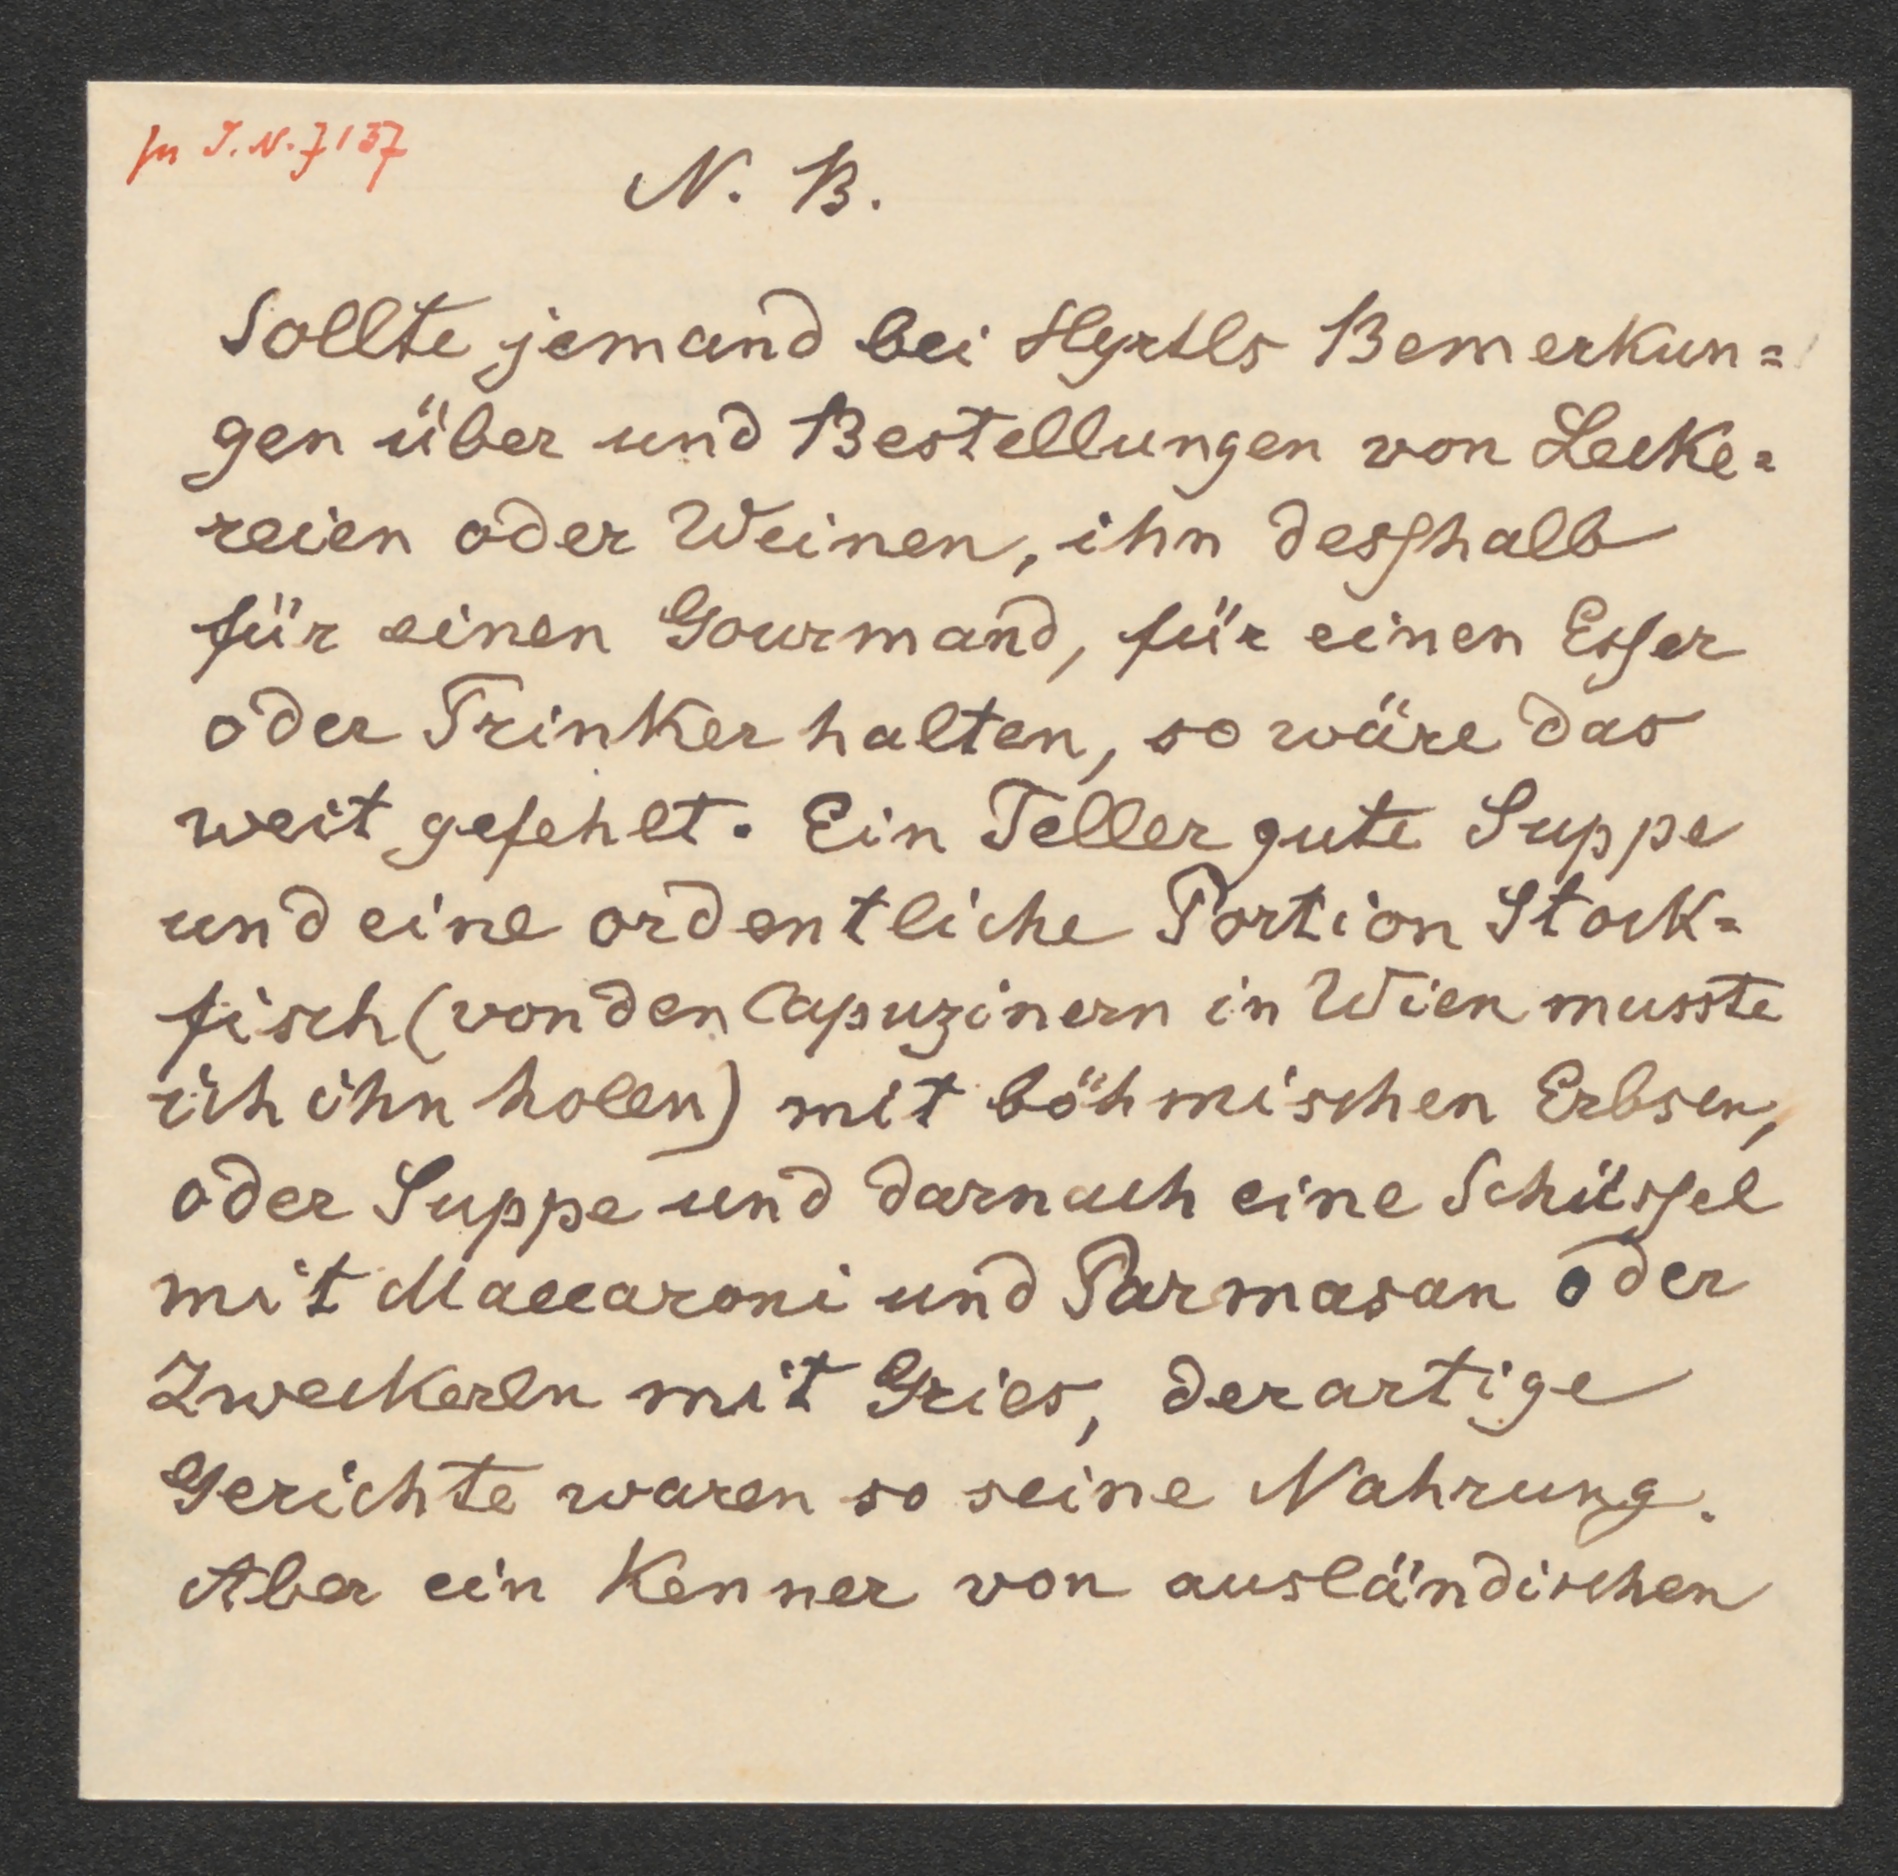 zu I.N. 7137
N. B.
Sollte jemand bei Hyrtls Bemerkun=
gen über und Bestellungen von Lecke=
reien oder Weinen, ihn desshalb
für einen Gourmand, für einen Esser
oder Trinker halten, so wäre das
weit gefehlt. Ein Teller gute Suppe
und eine ordentliche Portion Stock=
fisch (von den Capuzinern in Wien musste
ich ihn holen) mit böhmischen Erbsen,
oder Suppe und darnach eine Schüssel
mit Maccaroni und Parmasan oder
Zweckerln mit Gries, derartige
Gerichte waren so seine Nahrung.
Aber ein Kenner von ausländischen